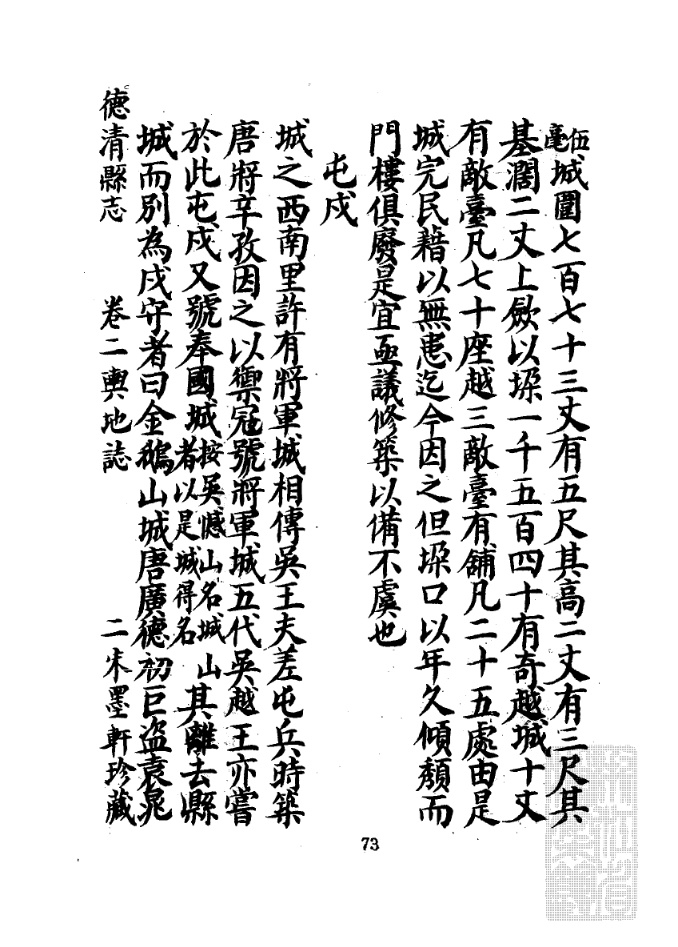 伍毫城圍七百七十三丈有五尺其高二丈有三尺其
基濶二丈上斂以垜一千五百四十有奇越城十丈
有敵臺凡七十座越三敵臺有舖凡二十五處由是
城完民藉以無患迄今因之但垜口以年久傾頹而
門樓俱廢是宜亟議修築以備不虞也
屯戍
城之西南里許有將軍城相傳吳王夫差屯兵時築
唐將辛孜因之以禦冦號將軍城五代吳越王亦嘗
於此屯戍又號奉國城按吳憾山名城山者以是城得名其離去縣
城而别為戍守者曰金鵝山城唐廣德初巨盗袁晁
德清縣志 卷二輿地誌 二 朱墨軒珍藏
73